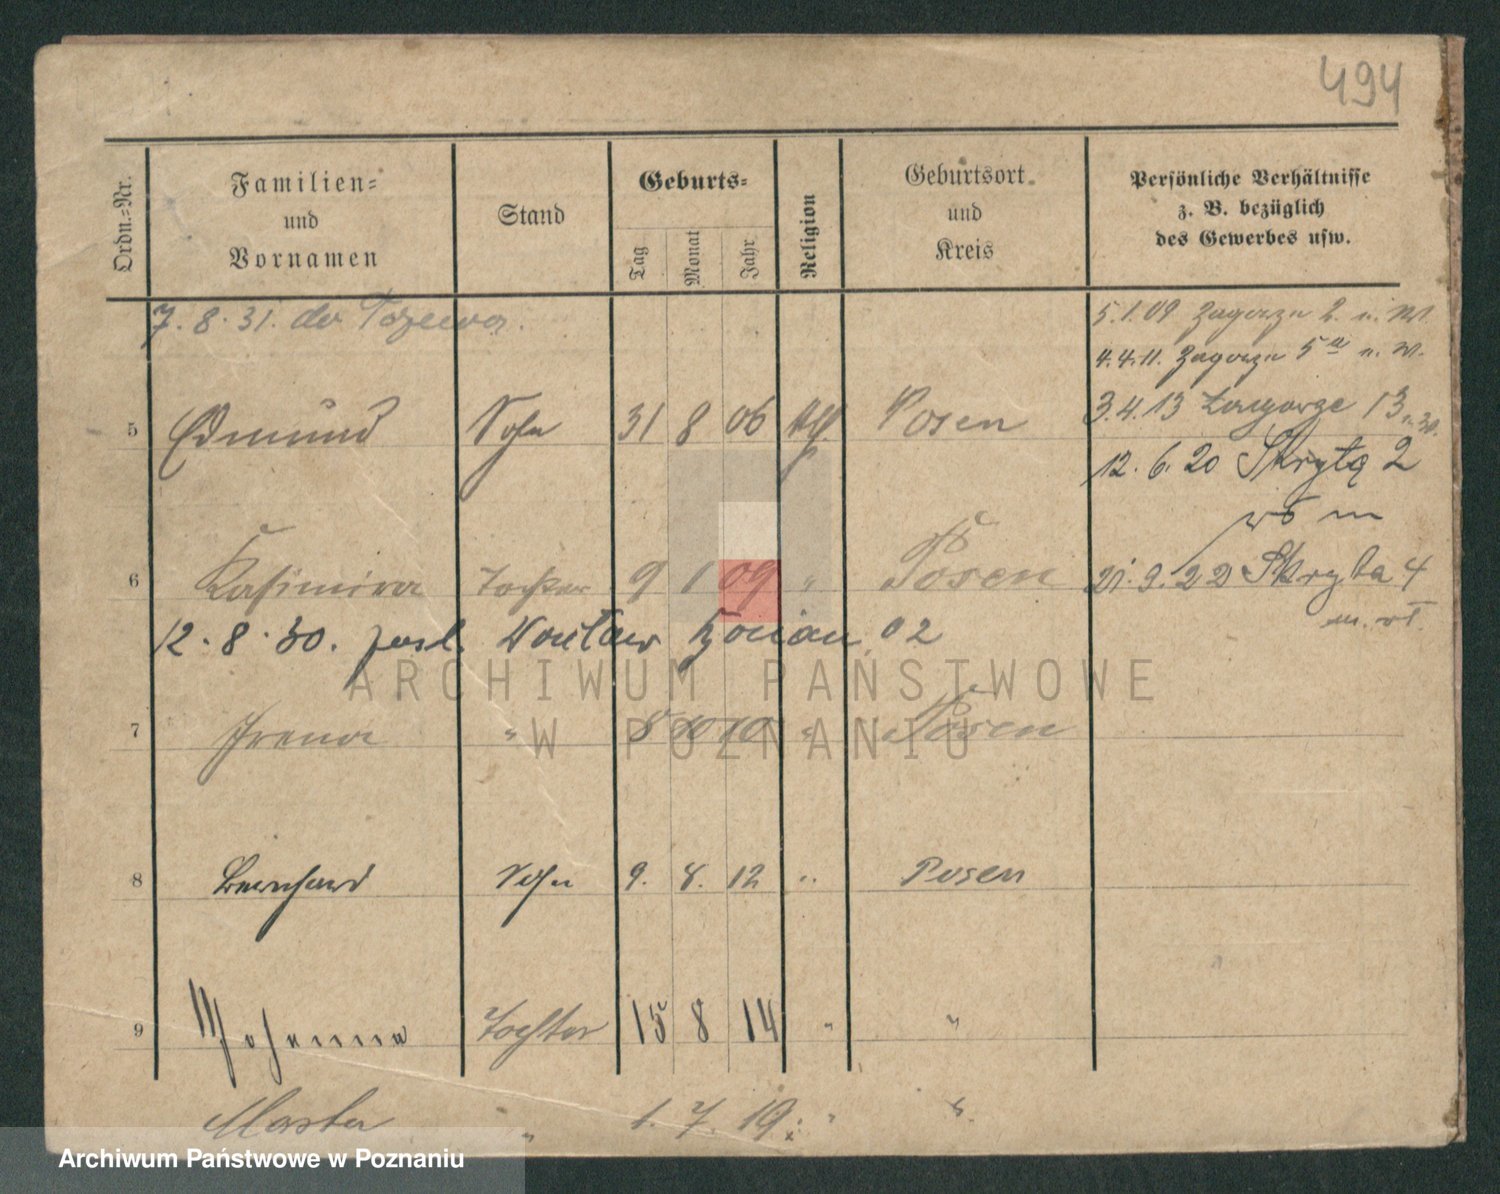 494
Ordn.-Nr.
Familien-
und
Vornamen
Stand
Geburts-
Tag
Monat
Jahr
Religion
Geburtsort
und
Kreis
Persönliche Verhältnisse
z. B. bezüglich
des Gewerbes usw.
7. 8. 31. do
5.1.09 Zagorze 2.
4.4.11. Zagorze 5
5 Edmund Sohn 31 8 06 kth. Posen 3.4.13 Zagorze 13
12. 6. 20 Skryta 2
6 Kasimira Tochter 9 1 09 " Posen 21. 9. 22 Skryta 4
12. 8. 30. 02
7 Irena " 8 10 10 " Posen
8 Bernhard Sohn 9. 8. 12 " Posen
9 Johanna Tochter 15 8 14 " "
Marta " 1. 7. 19. " "
ARCHIWUM PAŃSTWOWE
W POZNANIU
Archiwum Państwowe w Poznaniu